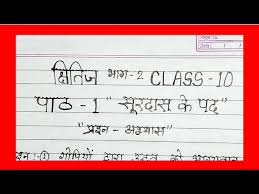 क्षितिज भाग-2 CLASS-10
पाठ-1 "सूरदास के पद"
"प्रश्न-अभ्यास"
प्रश्न:① गोपियों द्वारा उद्धव को भाग्यवान